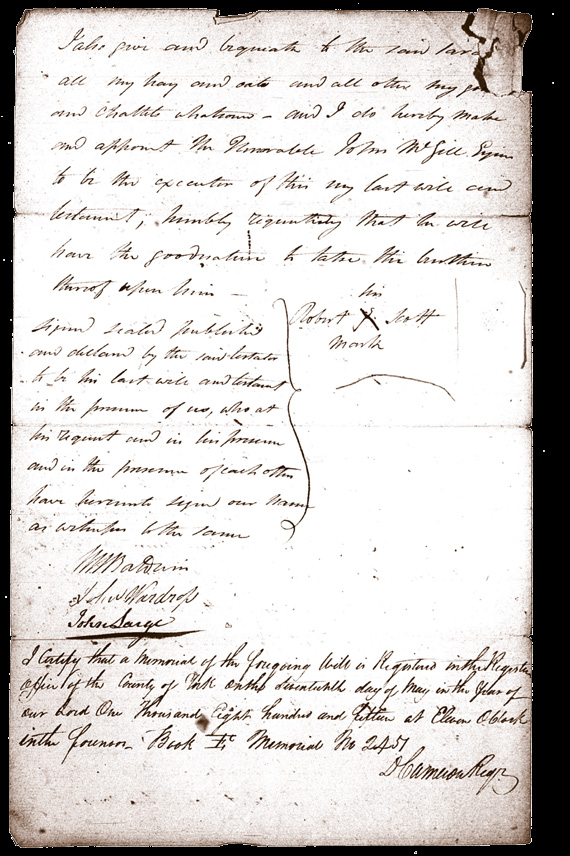 I also give and bequeath to the said Sara
all my hay and oats and all other my go
and Chattels whatsoever - and I do hereby make
and appoint the Honorable John McGill Esquire
to be the executor of this my last will and
testament; humbly requesting that he will
have the goodnature to take the burthen
thereof upon him -
his
Robert X Scott
mark
signed sealed published
and declared by the said testator
to be his last will and testament
in the presence of us, who at
his request and in his presence
and in the presence of each other
have hereunto signed our names
as witnesses to the same
WW Baldwin
John Wardrop
John Large
I Certify that a Memorial of the foregoing Will is Registered in the Register
office of the County of York on the day of May in the Year of
our Lord One Thousand Eight hundred and fifteen at Eleven O Clock
in the forenoon Book Memorial No 2451
D Cameron Regr